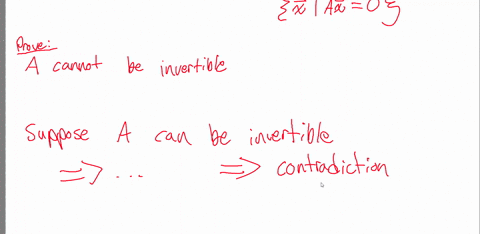 {x⃗ | Ax⃗ = 0}
Prove:
A cannot be invertible
Suppose A can be invertible
⇒ ... ⇒ contradiction